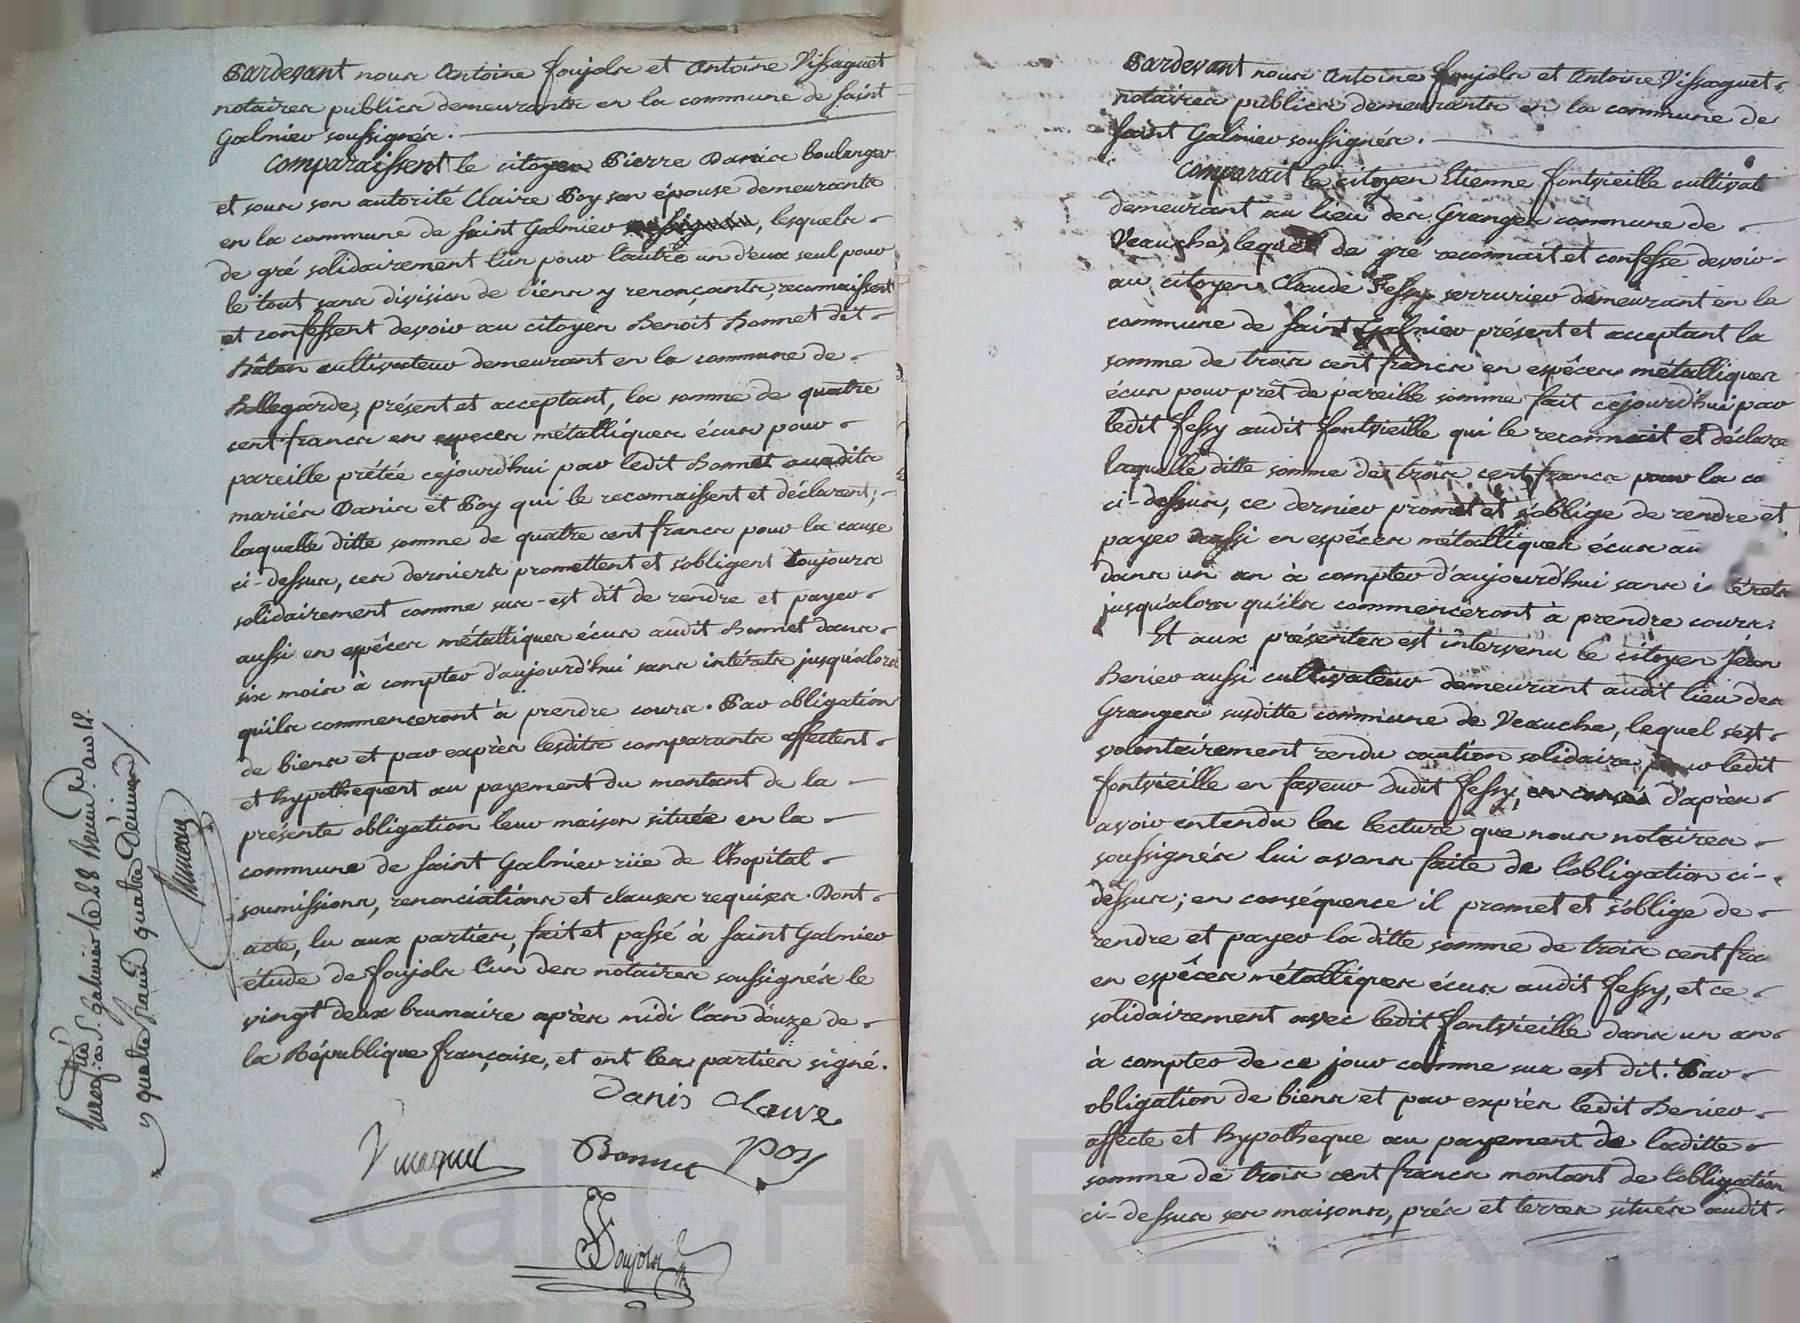 Pardevant nous Antoine Foujols et Antoine Vissaguet
notaires publics demeurants en la commune de Saint
Galmier soussignés.
Comparaissent le citoyen Pierre Danis boulanger
et sous son autorité Claire Poy son épouse demeurants
en la commune de Saint Galmier, lesquels
de gré solidairement l'un pour l'autre un d'eux seul pour
le tout sans division de biens y renonçants, reconnaissent
et confessent devoir au citoyen Benoit Bonnet dit
cultivateur demeurant en la commune de
Bellegarde, présent et acceptant, la somme de quatre
cent francs en espèces métalliques écus pour
pareille prêtée cejourd'hui par ledit Bonnet auxdits
mariés Danis et Poy qui le reconnaissent et déclarent;
laquelle ditte somme de quatre cent francs pour la cause
ci-dessus, ces derniers promettent et s'obligent toujours
solidairement comme sus-est dit de rendre et payer
aussi en espêces métalliques écus audit Bonnet dans
six mois à compter d'aujourd'hui sans intérêts jusqu'alors
qu'ils commenceront à prendre cours. Par obligation
de biens et par exprès lesdits comparants affectent
et hypothequent au payement du montant de la
présente obligation leur maison située en la
commune de Saint Galmier rüe de l'hopital
soumissions, renonciations et clauses requises. Dont
acte, lu aux parties, fait et passé à Saint Galmier
étude de Foujols l'un des notaires soussignés le
vingt deux brumaire après midi l'an douze de
la République française, et ont les parties signé.
Danis Claire
Vissaguet Bonnet Poy
Foujols
à St. Galmier le 28 Brum.re an 12.
quatre francs quatre décimes
Pardevant nous Antoine Foujols et Antoine Vissaguet
notaires publics demeurants en la commune de
Saint Galmier soussignés.
Comparait le citoyen Etienne Fontvieille cultivat
demeurant au lieu des Granges commune de
Veauche, lequel de gré reconnait et confesse devoir
au citoyen Claude Fessy serrurier demeurant en la
commune de Saint Galmier présent et acceptant la
somme de trois cent francs en espêces métalliques
écus pour prêt de pareille somme fait cejourd'hui par
ledit Fessy audit Fontvieille qui le reconnait et déclare
laquelle ditte somme de trois cent francs pour la ca
ci-dessus, ce dernier promet et s'oblige de rendre et
payer aussi en espêces métalliques écus au
dans un an à compter d'aujourd'hui sans i térêts
jusqu'alors qu'ils commenceront à prendre cours.
Et aux présentes est intervenu le citoyen Jean
Benier aussi cultivateur demeurant audit lieu des
Granges susditte commune de Veauche, lequel s'est
volontairement rendu caution solidaire pour ledit
Fontvieille en faveur dudit Fessy, d'après
avoir entendu la lecture que nous notaires
soussignés lui avons faite de l'obligation ci-
dessus; en conséquence il promet et s'oblige de
rendre et payer la ditte somme de trois cent fra
en espêces métalliques écus audit Fessy, et ce
solidairement avec ledit Fontvieille dans un an
à compter de ce jour comme sus est dit. Par
obligation de biens et par exprès ledit Benier
affecte et hypotheque au payement de laditte
somme de trois cent francs montant de l'obligation
ci-dessus ses maisons, prés et terres situés audit
Pascal CHAREYRON